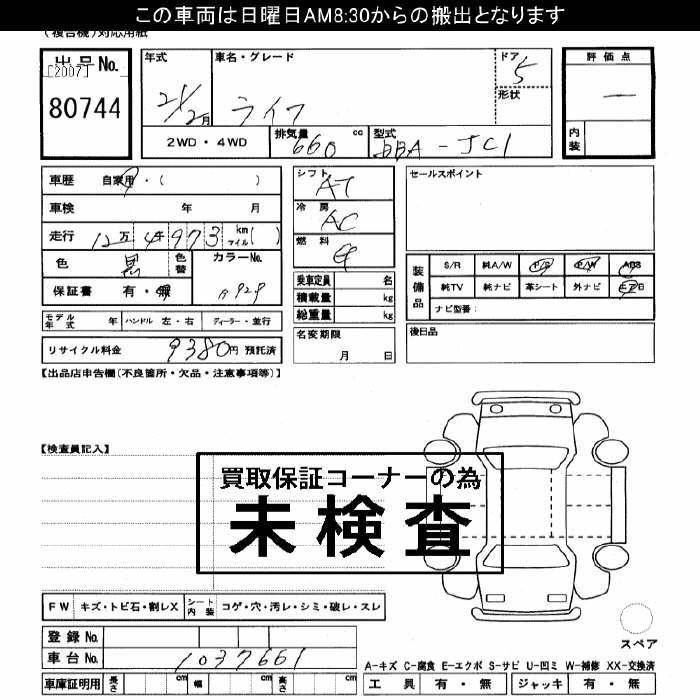 この車両は日曜日AM8:30からの搬出となります
(複合機)対応用紙
出品No. [2007] 80744
年式 21/2月
車名・グレード ライフ
ドア 5
形状
評価点 —
内装
2WD・4WD
排気量 660 cc
型式 DBA-JC1
車歴 自家用・( )
車検 年 月
走行 12万4千973 km マイル( )
色 黒 色替
カラーNo.
保証書 有・無
モデル年式 年 ハンドル 左・右 ディーラー・並行
リサイクル料金 9380円 預託済
シフト AT
冷房 AC
燃料
乗車定員 名
積載量 kg
総重量 kg
名変期限 月 日
セールスポイント
装備品 S/R 純A/W P/S P/W ABS
純TV 純ナビ 革シート 外ナビ
ナビ型番:
後日品
【出品店申告欄(不良箇所・欠品・注意事項等)】
【検査員記入】
買取保証コーナーの為
未検査
FW キズ・トビ石・割レX シート内装 コゲ・穴・汚レ・シミ・破レ・スレ
スペア
登録No.
車台No. 1037661
車庫証明用 長さ cm 幅 cm 高さ cm
A-キズ C-腐食 E-エクボ S-サビ U-凹ミ W-補修 XX-交換済
工具 有・無 ジャッキ 有・無